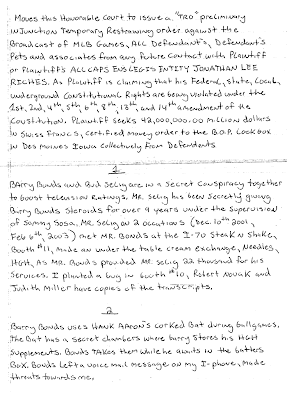 Moves this Honorable Court to issue a "TRO" preliminary
INJunction Temporary Restraining order against the
Broadcast of MLB Games, ALL Defendant's, Defendant's
Pets and associates from any future contact with Plaintiff
or Plaintiff's ALL CAPS ENS LEGIS ENTITY JONATHAN LEE
RICHES. As Plaintiff is claiming that his Federal, State, Local,
underground Constitutional Rights are being violated under the
1st, 2nd, 4th, 5th, 6th, 8th, 13th, and 14th amendment of the
Constitution. Plaintiff seeks 42,000,000.00 million dollars
in Swiss Francs, certified money order to the B.O.P. Lockbox
in Des Moines Iowa collectively from Defendants
1
Barry Bonds and Bud Selig are in a secret conspiracy together
to boost television Ratings. Mr. Selig has been secretly giving
Barry Bonds steroids for over 9 years under the supervision
of Sammy Sosa. Mr. Selig on 2 occasions (Dec. 10th 2001,
Feb 6th, 2003) met MR. Bonds at the I-70 Steak n Shake,
Booth #11, made an under the table cream exchange, Needles,
HGH, As Mr. Bonds provided Mr. Selig 22 thousand for his
services. I planted a bug in booth #10, Robert Novak and
Judith Miller have copies of the transcripts.
2
Barry Bonds uses HANK AARON'S corked Bat during ballgames.
The Bat has a secret chambers where barry stores his HGH
supplements. Bonds TAKES them while he awaits in the batters
Box. Bonds left a voice mail message on my I-phone, made
threats towards me.